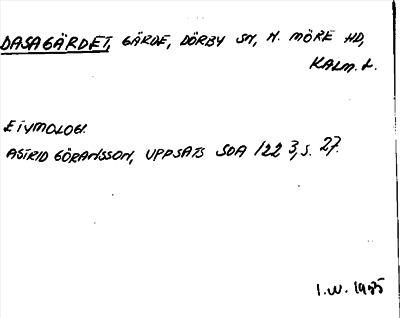 DASAGÄRDET, GÄRDE, DÖRBY SN, N. MÖRE HD,
KALM. L.
ETYMOLOGI.
ASTRID GÖRANSSON, UPPSATS SOA 122 3, S. 27.
I.W. 1985